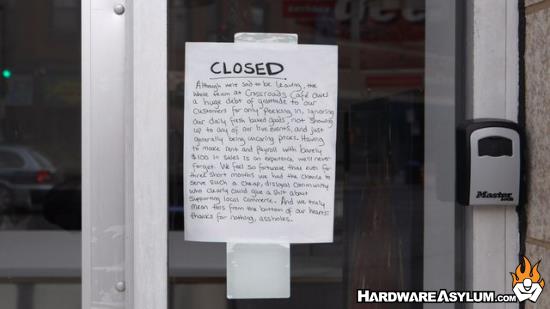 CLOSED
Although we're sad to be leaving, the
whole team at Crossroads Café owes
a huge debt of gratitude to our
customers for only peeking in, ignoring
our daily fresh baked goods, not showing
up to any of our live events, and just
generally being uncaring pricks. Having
to make rent and payroll with barely
$100 in sales is an experience we'll never
forget. We feel so fortunate that even for
three short months we had the chance to
serve such a cheap, disloyal community
who clearly could give a shit about
supporting local commerce. And we truly
mean this from the bottom of our hearts:
thanks for nothing, assholes.
Master
HARDWAREASYLUM.COM